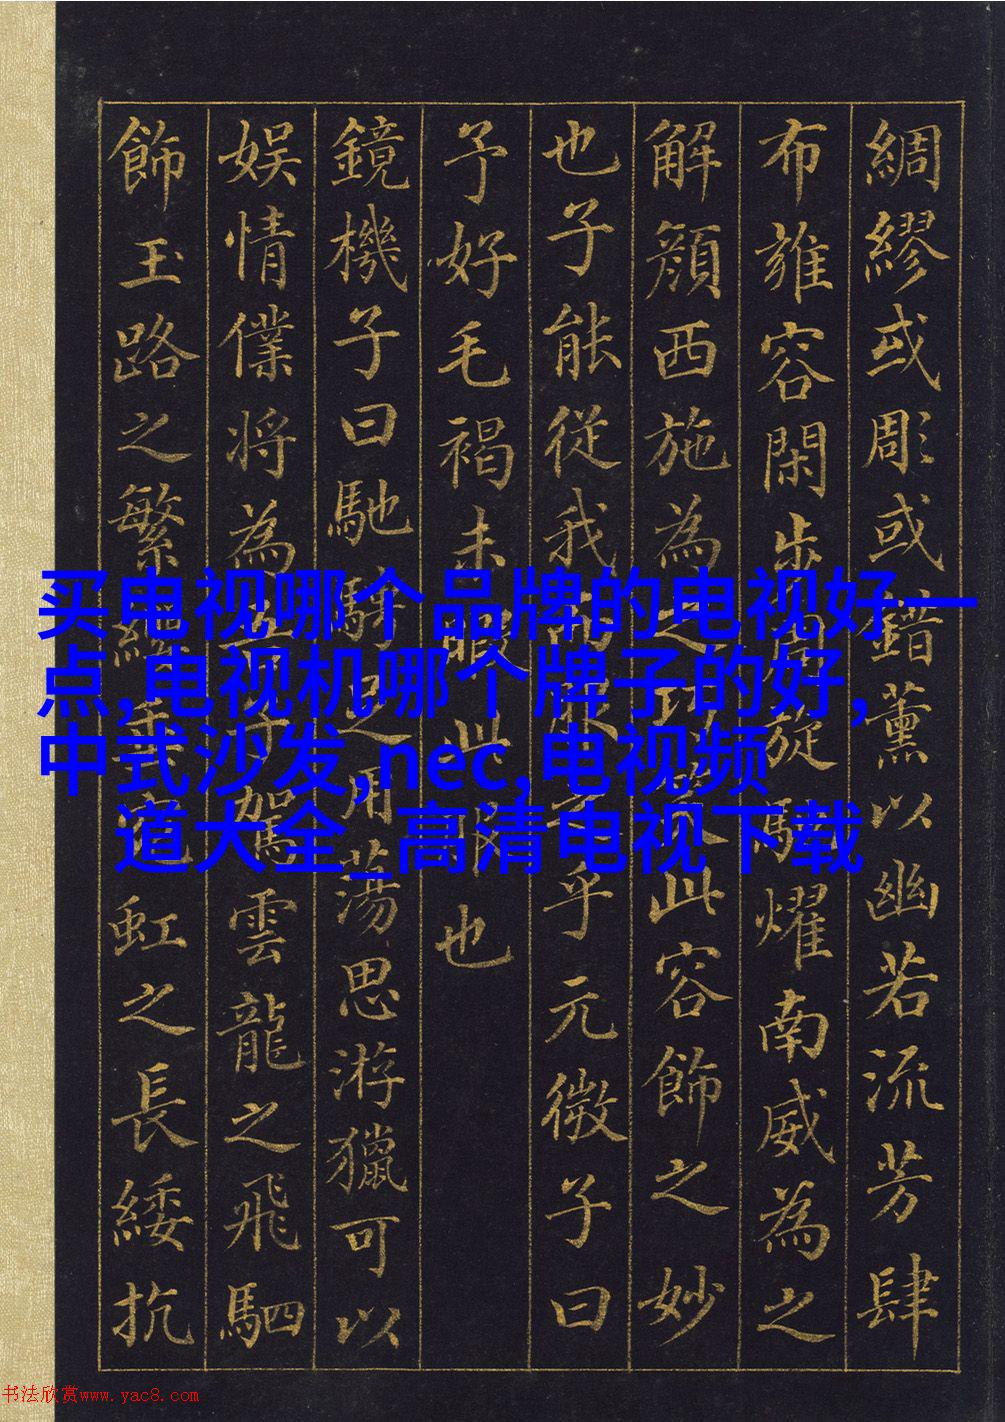 綢繆或彫或錯薰以幽若流芳肆
布雍容閑步周旋馳燿南威為之
解顏西施為之巧此容飾之妙
也子能從我而服乎元微子曰
予好毛褐未暇此服也
鏡機子曰馳騁足用蕩思游獵可以
娛情僕將為吾子駕雲龍之飛駟
飾玉路之繁纓垂宛虹之長綏抗
买电视哪个品牌的电视好一
点,电视机哪个牌子的好,
中式沙发,nec,电视频
道大全_高清电视下载
书法欣赏www.yac8.com